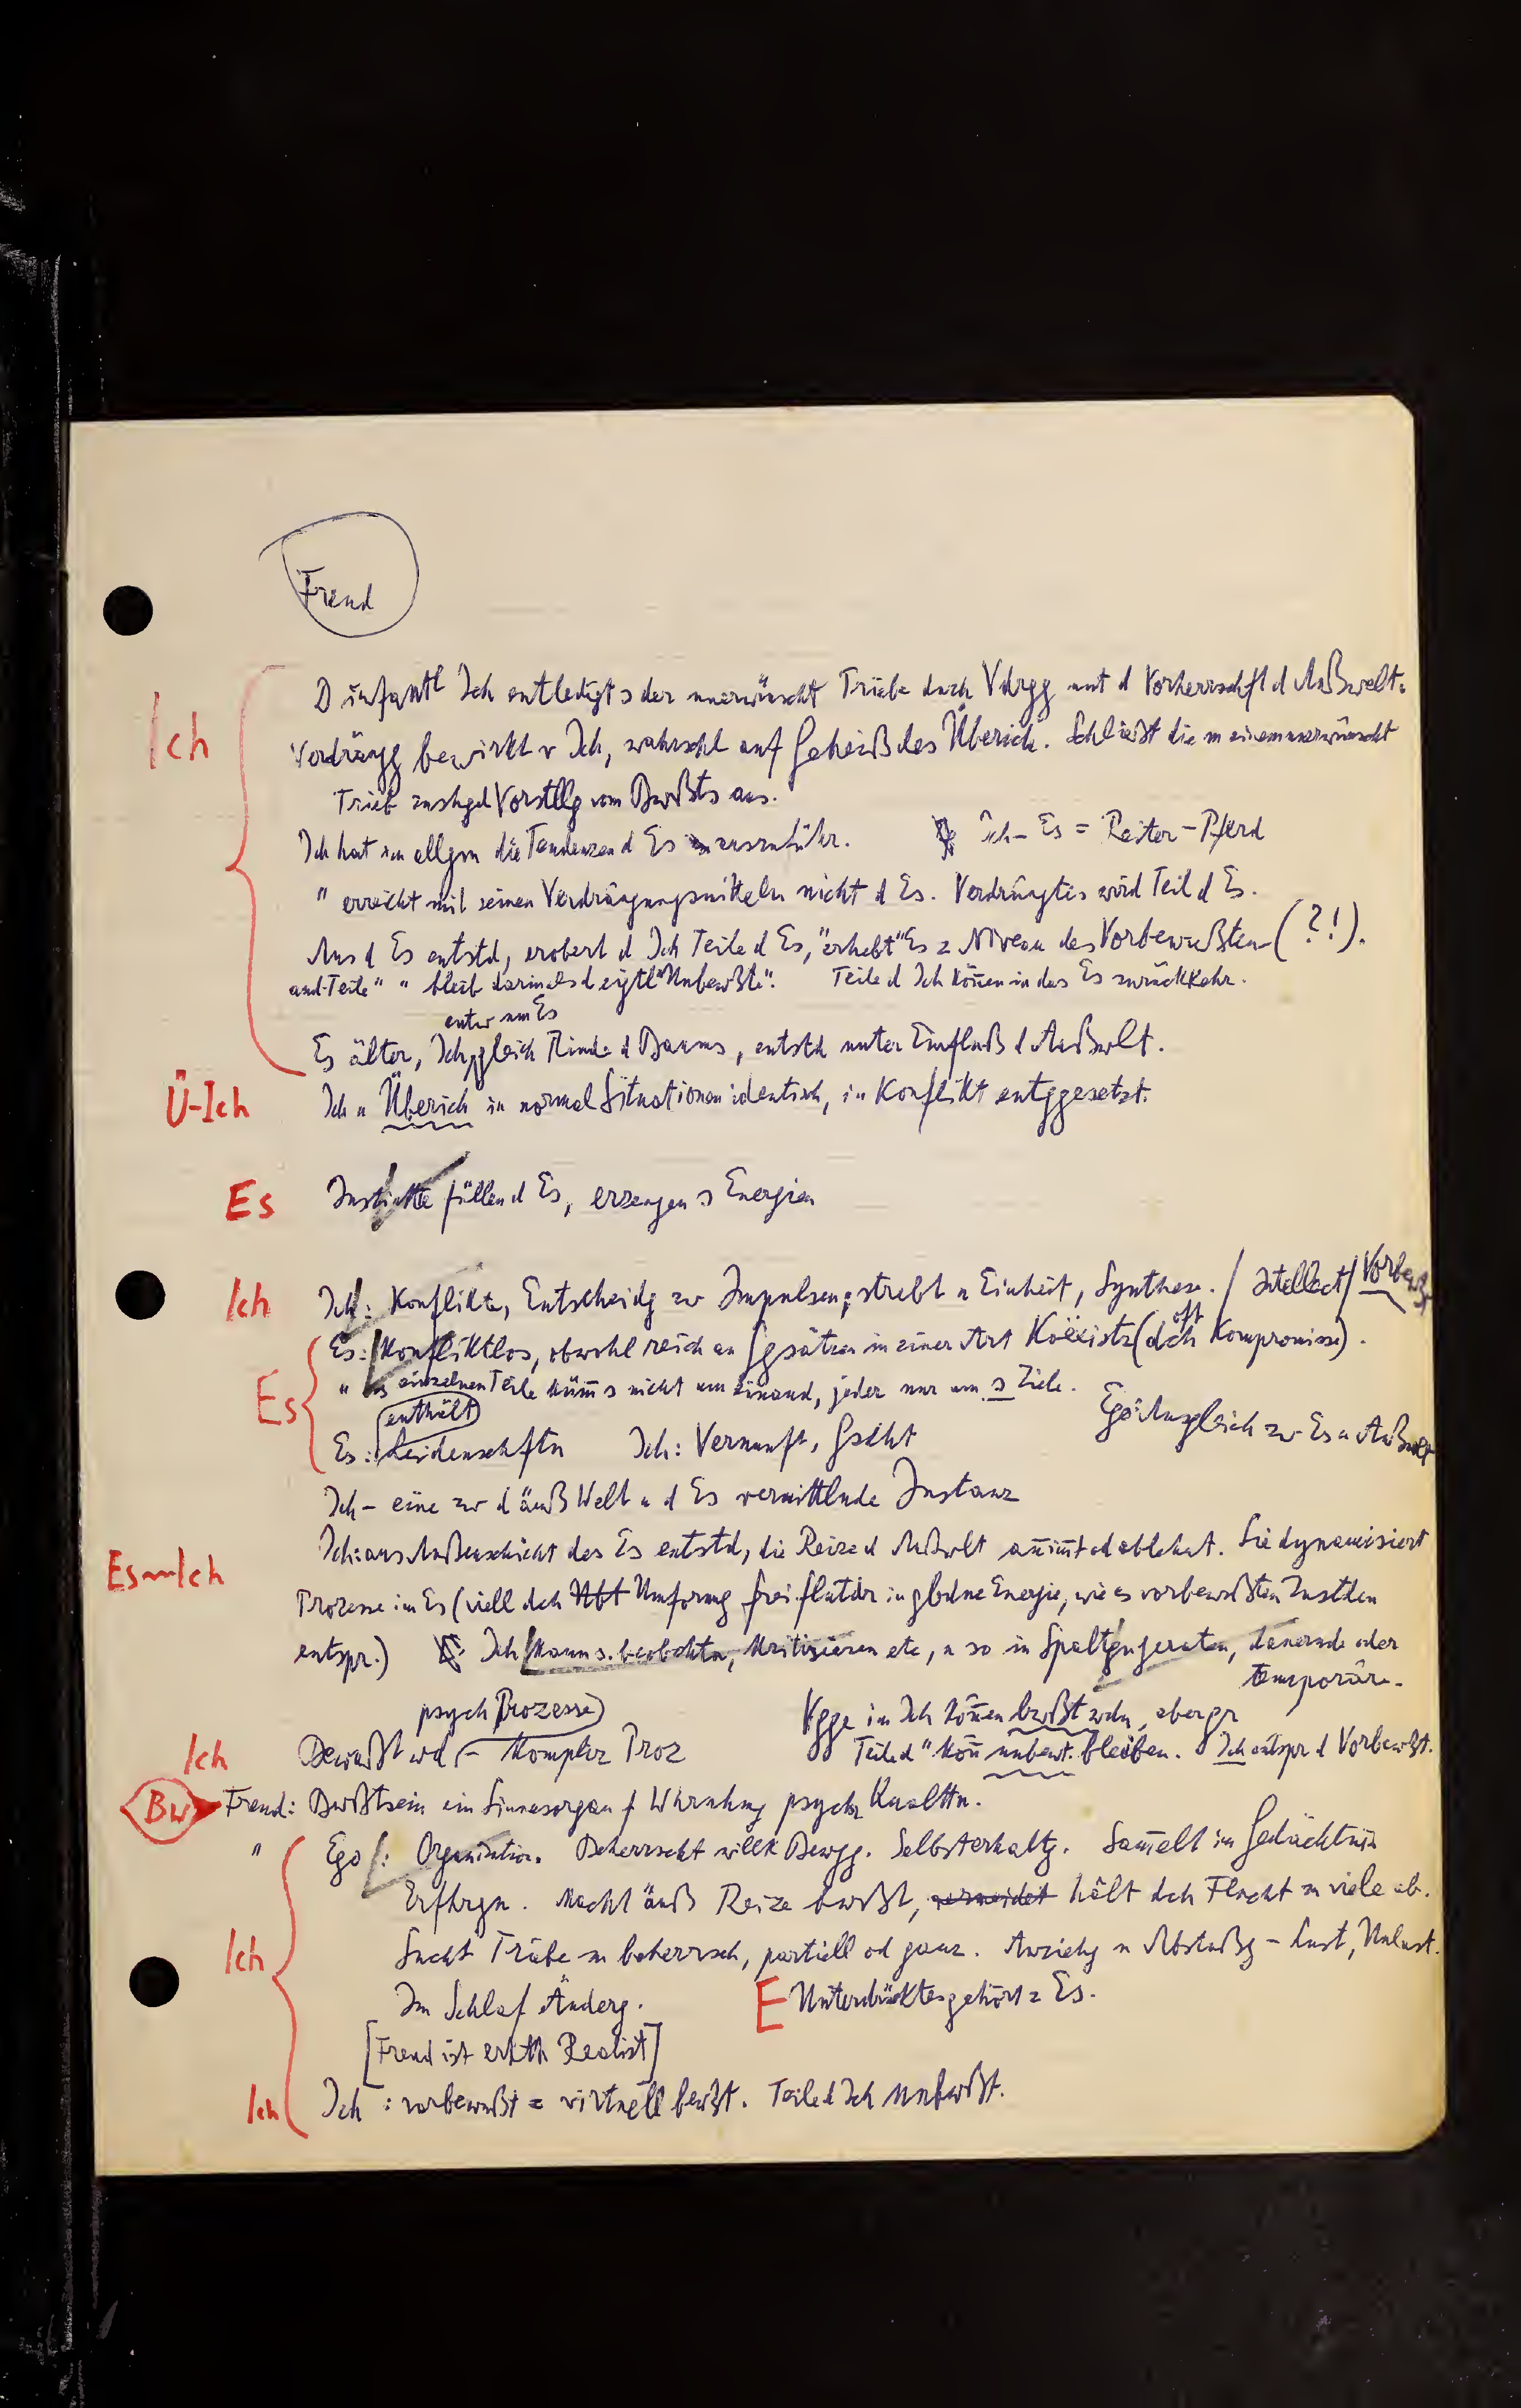 Freud
Ich
D infantl Ich entledigt s der unerwünscht Triebe durch Vdrgg unt d Vorherrschft d Außwelt.
Verdrängg bewirkt v Ich, wahrschl auf Geheiß des Überich. Schließt die m einem unerwünscht
Trieb zushgd Vorstllg vom Bwßts aus.
Ich hat im allgm die Tendenzen d Es auszuführ. Ich - Es = Reiter - Pferd
" erreicht mit seinen Verdrängungsmitteln nicht d Es. Verdrängtes wird Teil d Es.
Aus d Es entstd, erobert d Ich Teile d Es, "erhebt" Es z Niveau des Vorbewußten (?!).
and. Teile " " bleib darin als d eigtl "Unbewßte". Teile d Ich können in das Es zurückkehr.
unter am Es
Es älter, Ich gleich Rinde d Baums, entstd unter Einfluß d Außwlt.
Ü-Ich Ich u Überich in normal Situationen identisch, in Konflikt entggesetzt.
Es Instinkte füllen d Es, erzeugen s Energien
Ich Ich: Konflikte, Entscheidg zw Impulsen; strebt n Einheit, Synthese. / Intellect / Vorbewßt
Es: Konfliktlos, obwohl reich an Ggsätzen in einer Art Koexistz (dch oft Kompromisse).
Es " Die einzelnen Teile kümm s nicht um einand, jeder nur um s Ziele.
enthält
Es: Leidenschftn Ich: Vernunft, Gscht Ego: Ausgleich zw Es u Außwlt
Ich - eine zw d äuß Welt u d Es vermittlnde Instanz
Es~Ich Ich: aus Außenschicht des Es entstd, die Reize d Außwlt annimmt od ablehnt. Sie dynamisiert
Prozesse im Es (viell dch Umformg frei flutdr in gbdne Energie, wie es vorbewußten Zustden
entspr.) Ich kann s. beobachtn, kritisieren etc, u so in Spaltgn geraten, dauernde oder
temporäre.
psych Prozesse Vgge im Ich können bwßt wdn, aber gr
Ich Bewußt wd - Komplex Proz Teile d " könn unbewt. bleiben. Ich entspr d Vorbewßt.
Bw Freud: Bwßtsein ein Sinnesorgan f Whrnhmg psychr Qualttn.
" Ego: Organisation. Beherrscht willk Bewgg. Selbsterhaltg. Sammelt im Gedächtnis
Erfhrgn. Macht äuß Reize bwßt, vermeidet hält dch Flucht zu viele ab.
Ich Sucht Triebe zu beherrsch, partiell od ganz. Anziehg u Abstoßg - Lust, Unlust.
Im Schlaf Änderg. E Unterdrücktes gehört z Es.
[Freud ist erktth Realist]
Ich Ich: vorbewußt = virtuell bewßt. Teile d Ich unbwßt.